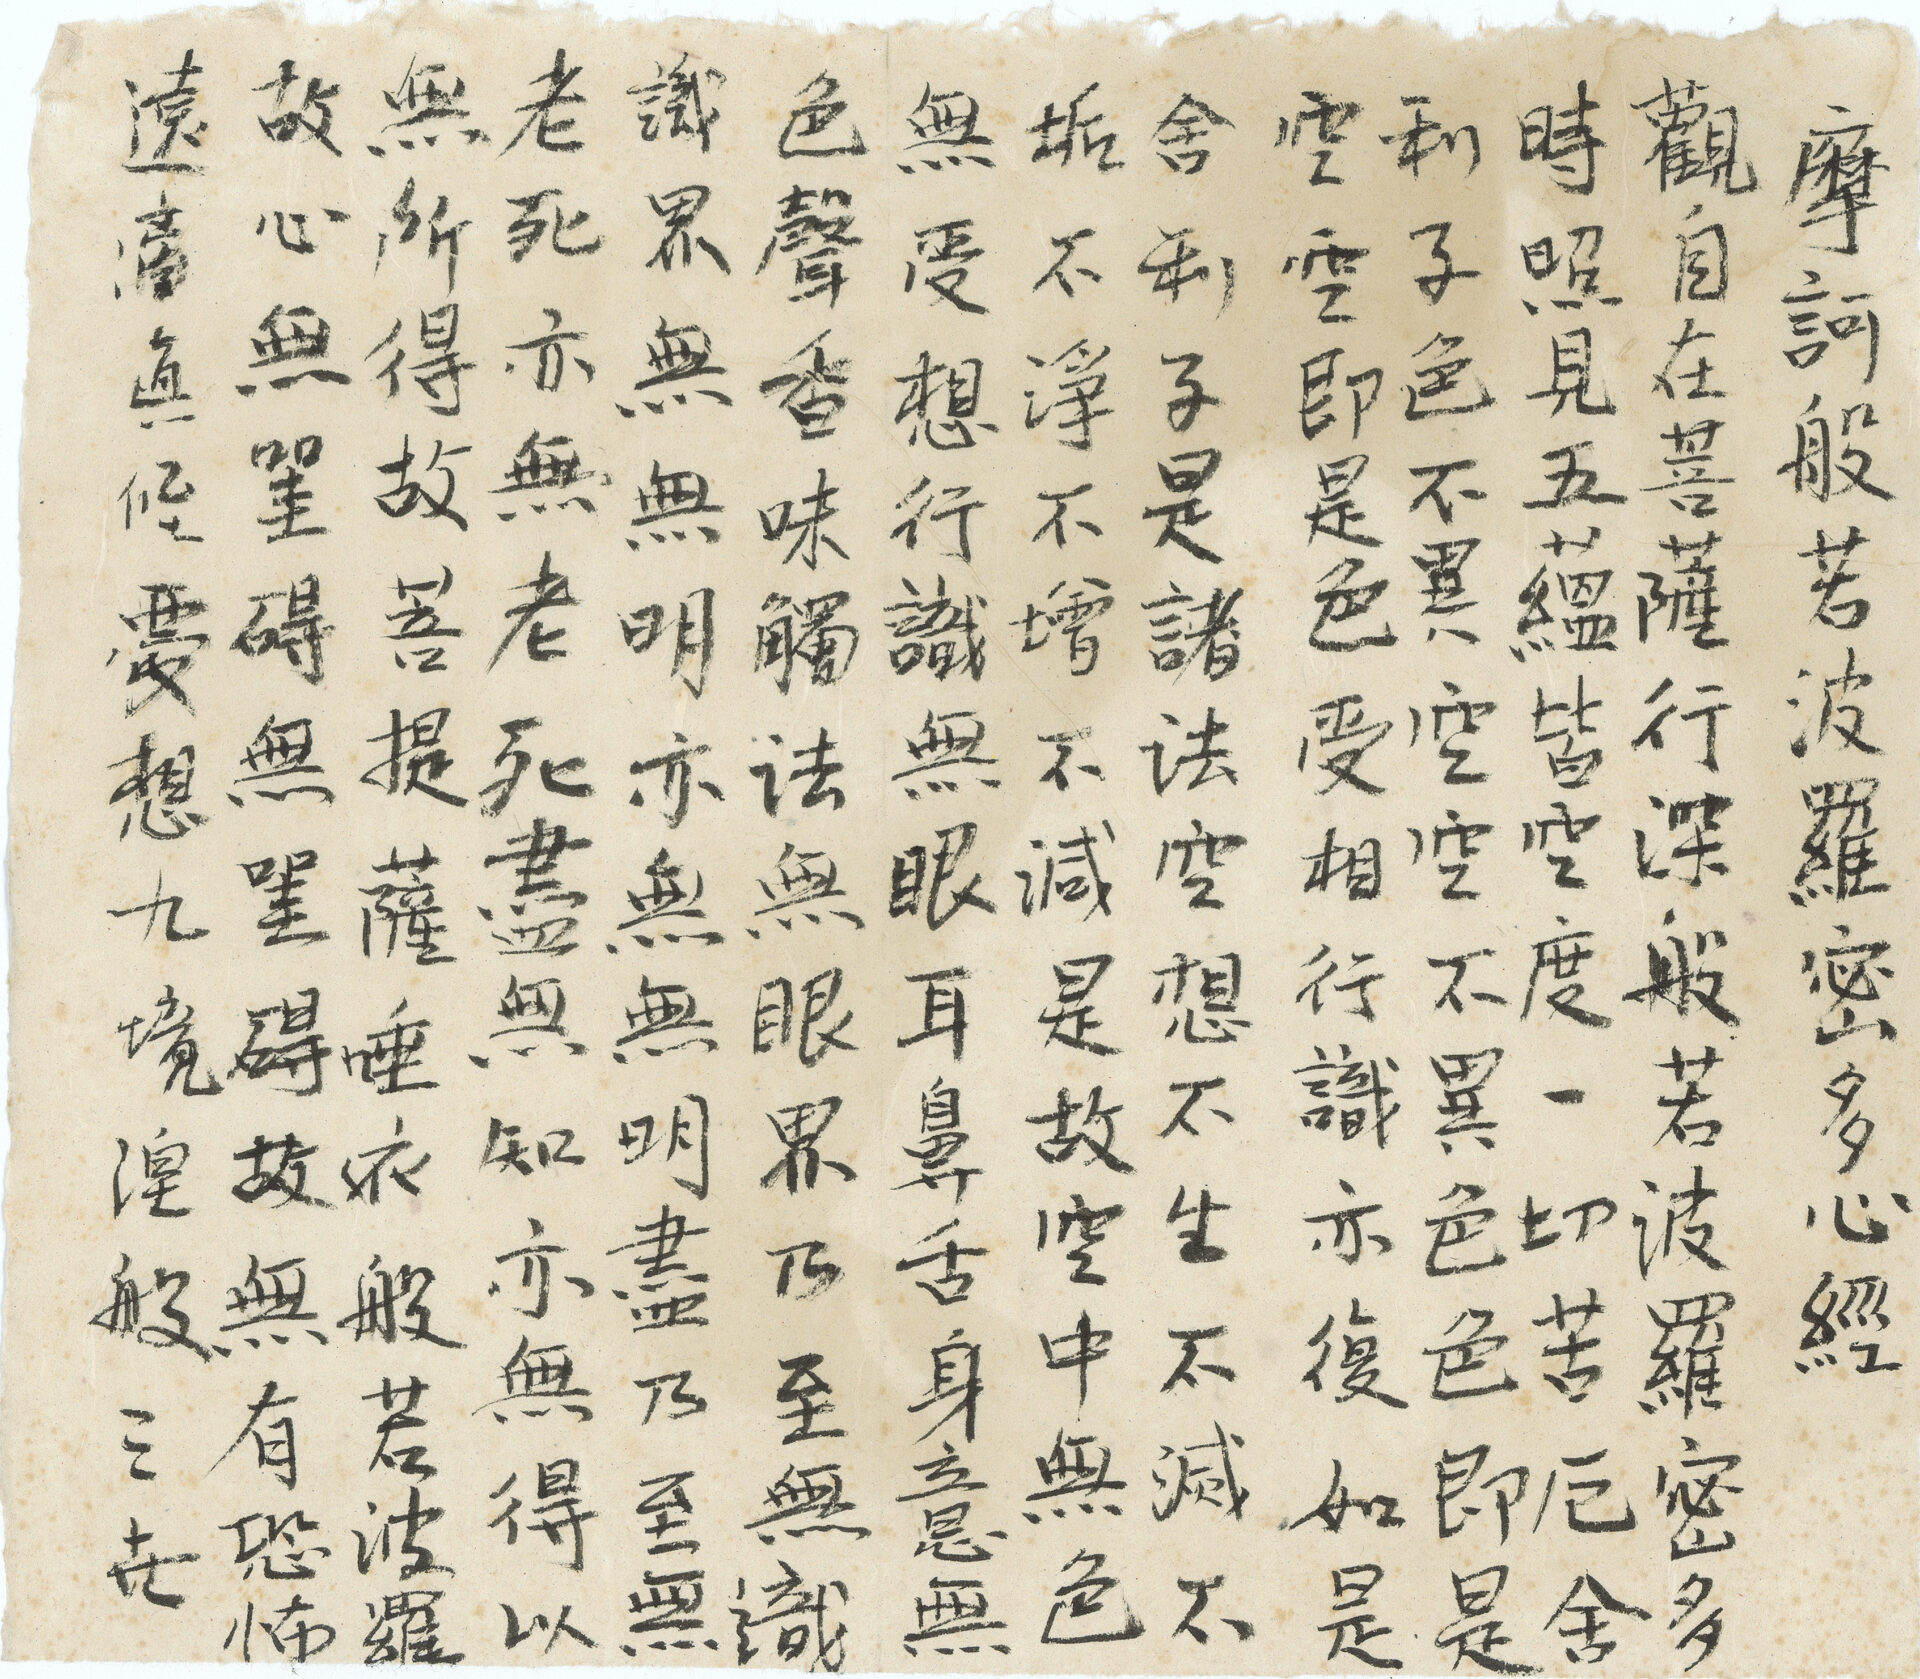 摩訶般若波羅密多心經
觀自在菩薩行深般若波羅密多
時照見五蘊皆空度一切苦厄舍
利子色不異空空不異色色即是
空空即是色受相行識亦復如是
舍利子是諸法空想不生不滅不
垢不淨不增不減是故空中無色
無受想行識無眼耳鼻舌身意無
色聲香味觸法無眼界乃至無識
識界無無明亦無無明盡乃至無
老死亦無老死盡無知亦無得以
無所得故菩提薩唾衣般若波羅
故心無罣碍無罣碍故無有恐怖
遠真想九境湟般三世